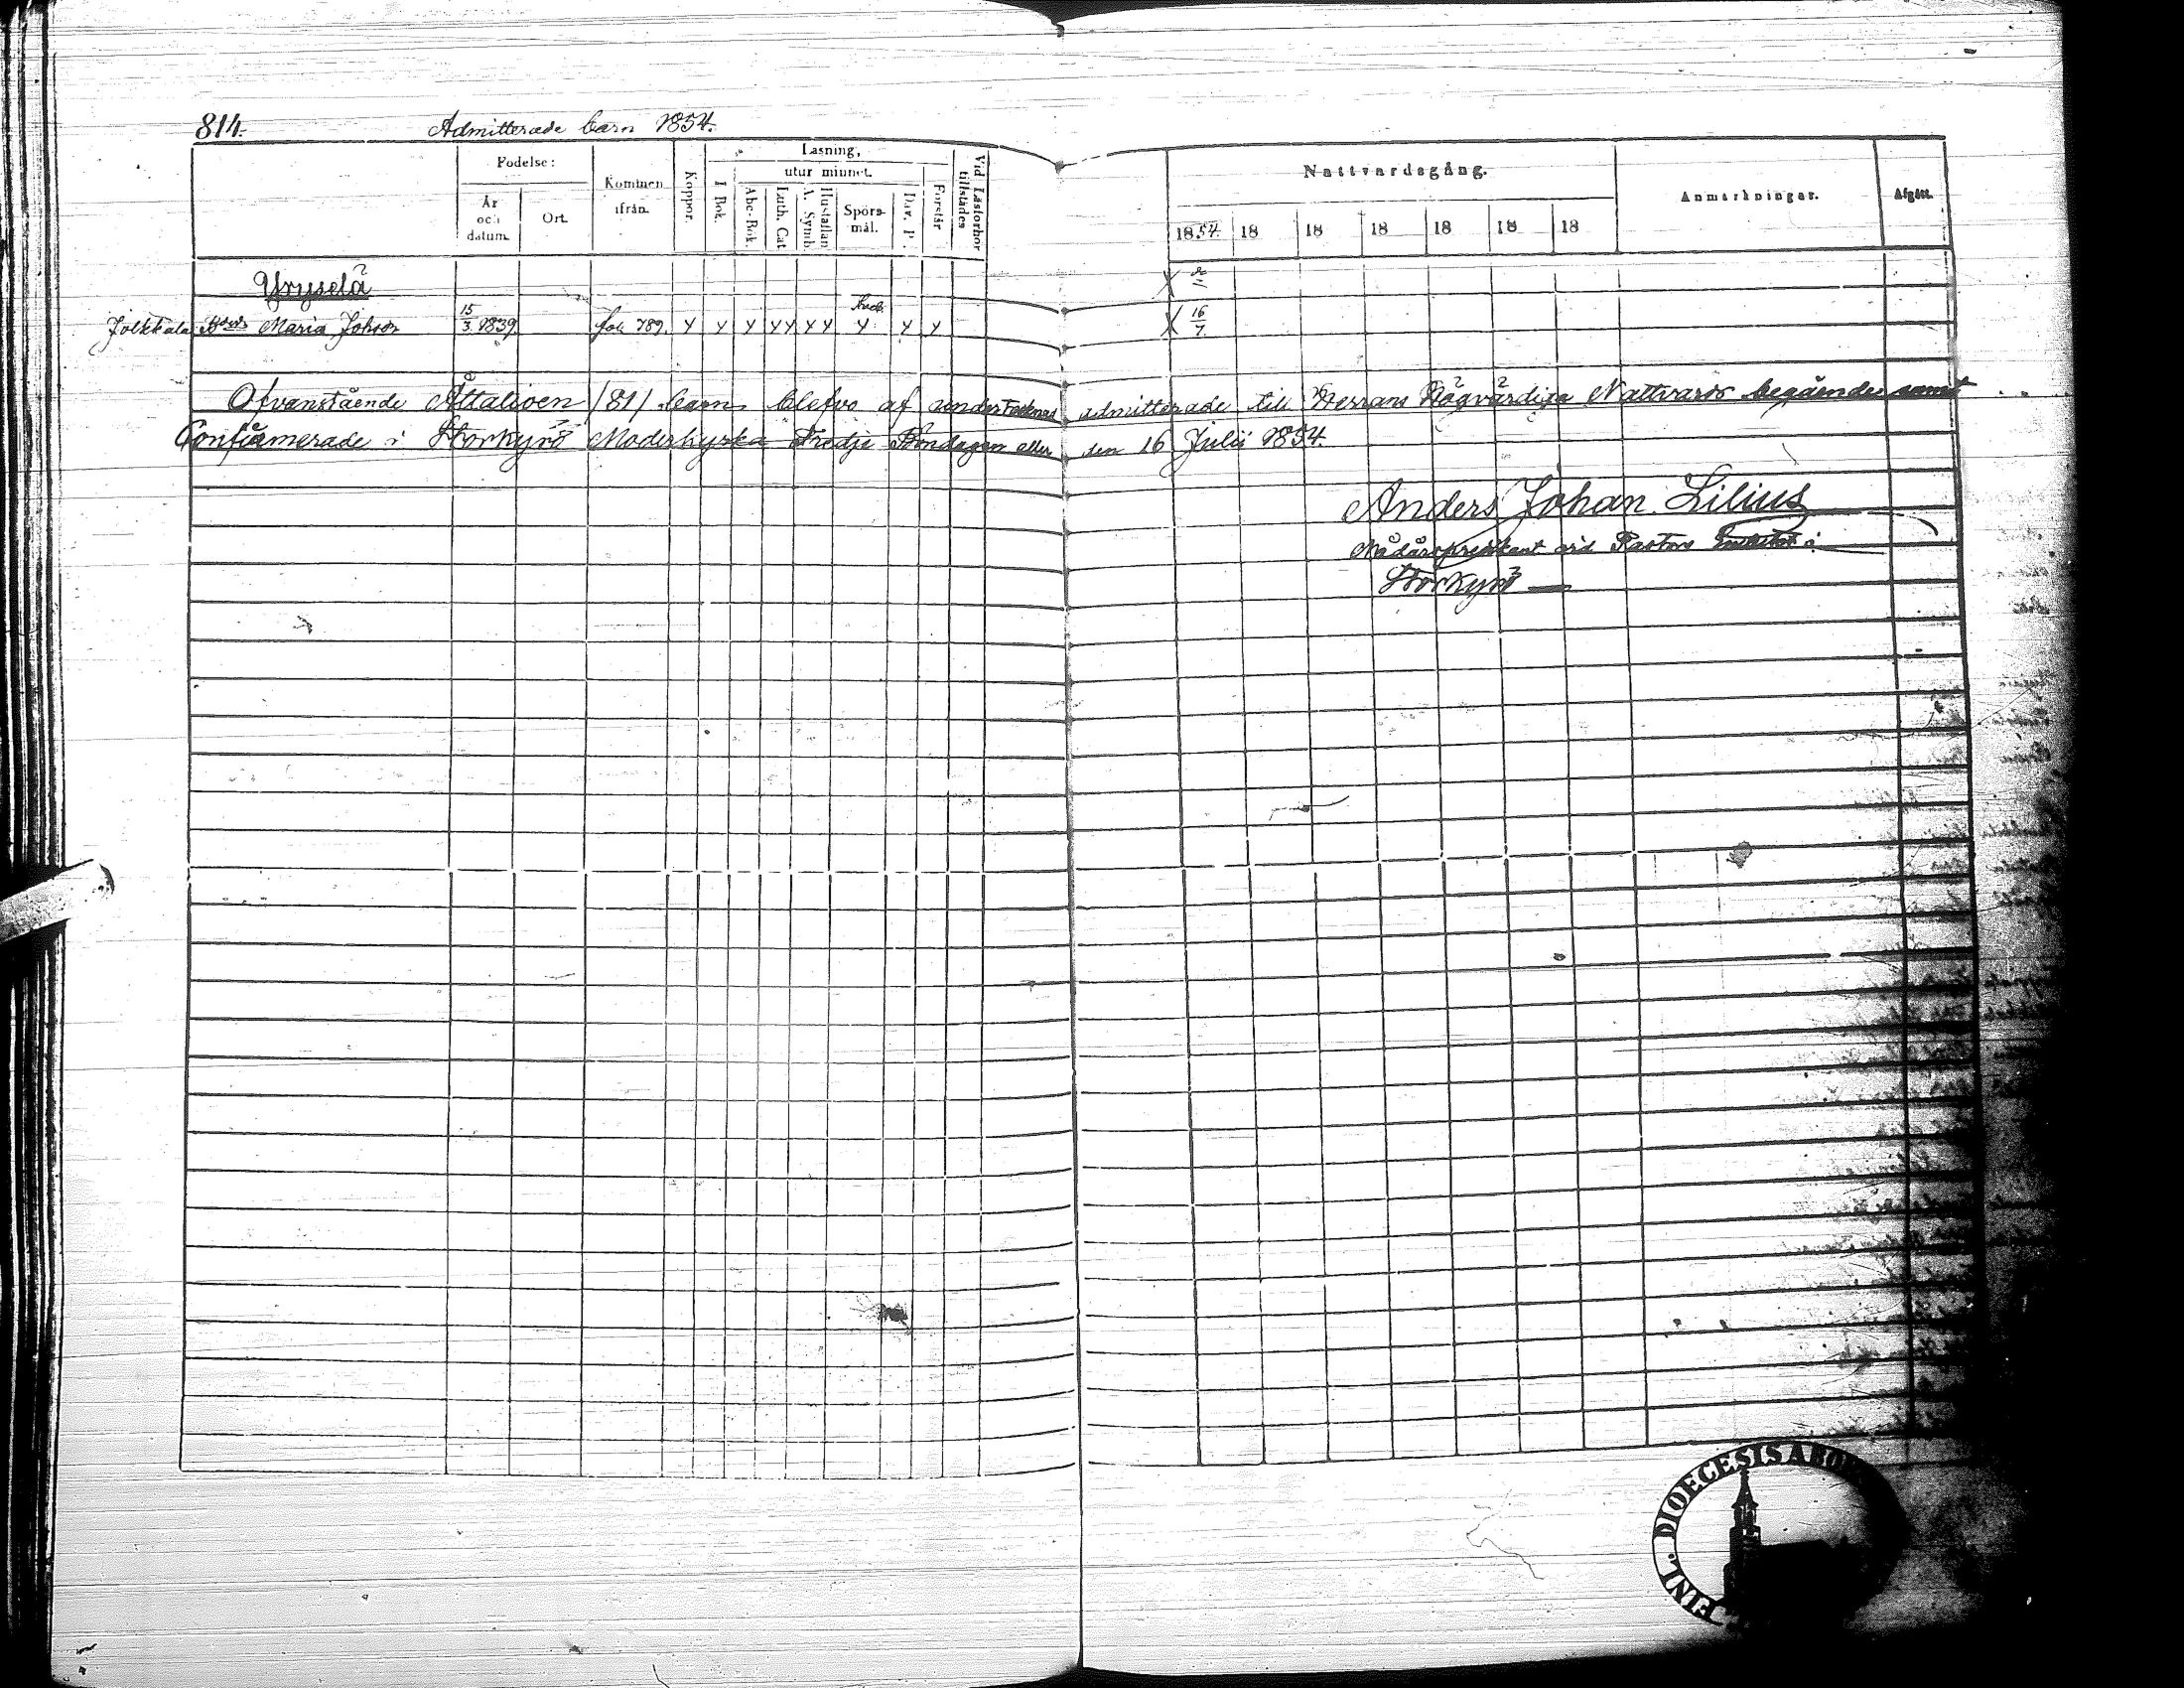 814.
Admitterade barn 1854.
Födelse:
Kommen ifrån.
Koppor.
Läsning,
utur minnet.
I Bok.
Abc-Bok.
Luth. Cat.
A. Symb.
Hustaflan
Spörsmål.
Dav. P.
Förstår
Vid Läsförhör tillstädes
År och datum.
Ort.
Nattvardsgång.
Anmärkningar.
Afgått.
1854. 18 18 18 18 18 18
Yryselä
Jolkkala Maria Johsdr 15/3 1839 fol. 789. 16/7
Ofvanstående Åttatioen /81/ barn blefvo af undertecknad admitterade till Herrans Högvärdiga Nattvards begående samt
Confirmerade i Storkyrö Moderkyrka Tredje Böndagen eller den 16 Julii 1854.
Anders Johan Lilius
Nådårspredikant vid Pastors i
Storkyrö
FINL. DIOECESIS ABO